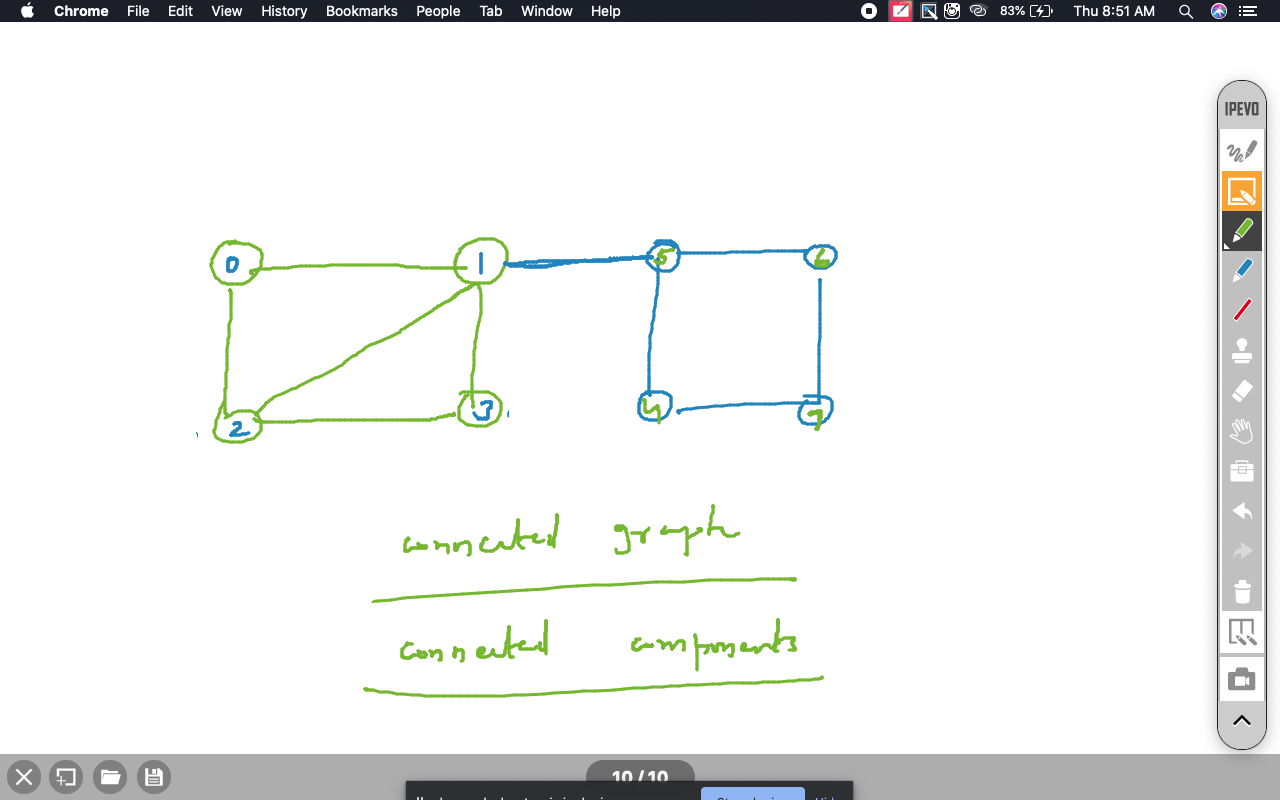 Chrome File Edit View History Bookmarks People Tab Window Help 83% Thu 8:51 AM
IPEVO
0 1 5 6
2 3 4 7
connected graph
connected components
10 / 10